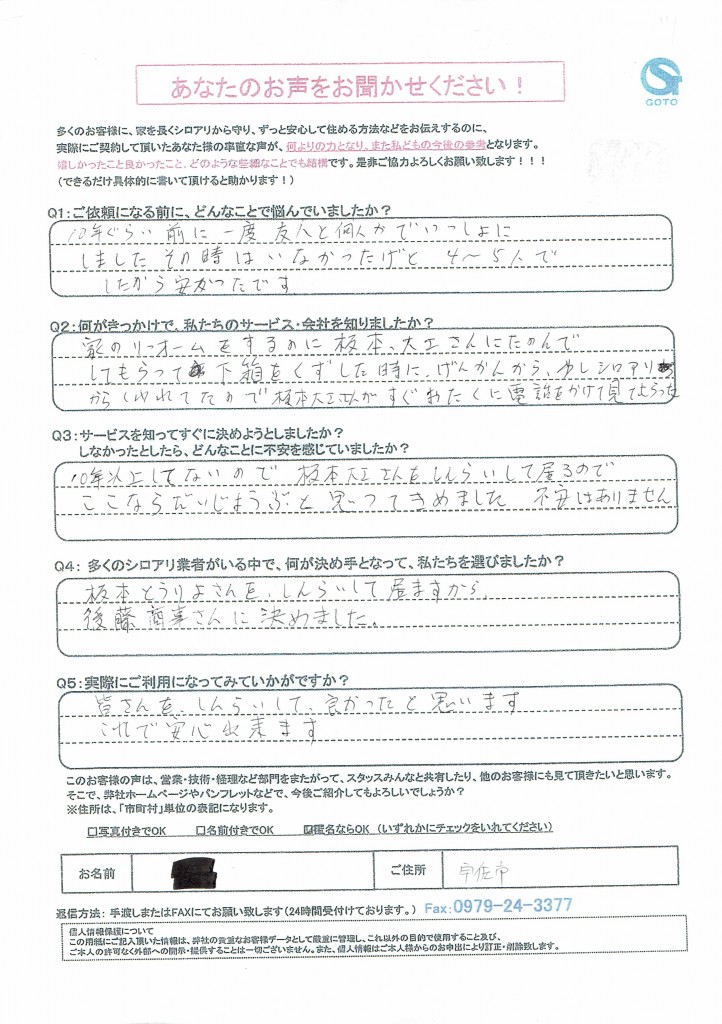 あなたのお声をお聞かせください！
GOTO
多くのお客様に、家を長くシロアリから守り、ずっと安心して住める方法などをお伝えするのに、
実際にご契約して頂いたあなた様の率直な声が、何よりの力となり、また私どもの今後の参考となります。
嬉しかったこと良かったこと、どのような些細なことでも結構です。是非ご協力よろしくお願い致します！！！
（できるだけ具体的に書いて頂けると助かります！）
Q1：ご依頼になる前に、どんなことで悩んでいましたか？
10年ぐらい前に一度友人と何人かでいっしょに
しました その時はいなかったげと 4〜5人で
したから安かったです
Q2：何がきっかけで、私たちのサービス・会社を知りましたか？
家のリフォームをするのに板本、大工さんにたのんで
してもらって 下箱をくずした時に、げんかんから、シロアリ
から れてたので板本大工さんがすぐ に電話をかけて見てもらった
Q3：サービスを知ってすぐに決めようとしましたか？
しなかったとしたら、どんなことに不安を感じていましたか？
10年以上してないので 板本大工さんをしんらいして居るので
ここならだいじょうぶと思ってきめました 不安はありません
Q4： 多くのシロアリ業者がいる中で、何が決め手となって、私たちを選びましたか？
板本とうりょさんを、しんらいして居ますから、
後藤商事さんに決めました。
Q5：実際にご利用になってみていかがですか？
皆さんを、しんらいして、良かったと思います
これで安心出来ます
このお客様の声は、営業・技術・経理など部門をまたがって、スタッスみんなと共有したり、他のお客様にも見て頂きたいと思います。
そこで、弊社ホームページやパンフレットなどで、今後ご紹介してもよろしいでしょうか？
※住所は、「市町村」単位の表記になります。
□写真付きでOK □名前付きでOK ☑匿名ならOK （いずれかにチェックをいれてください）
お名前 ご住所 宇佐市
返信方法： 手渡しまたはFAXにてお願い致します（24時間受付けております。） Fax：0979-24-3377
個人情報保護について
この用紙にご記入頂いた情報は、弊社の貴重なお客様データとして厳重に管理し、これ以外の目的で使用すること及び、
ご本人の許可なく外部への開示・提供することは一切ございません。また、個人情報はご本人様からのお申出により訂正・削除致します。